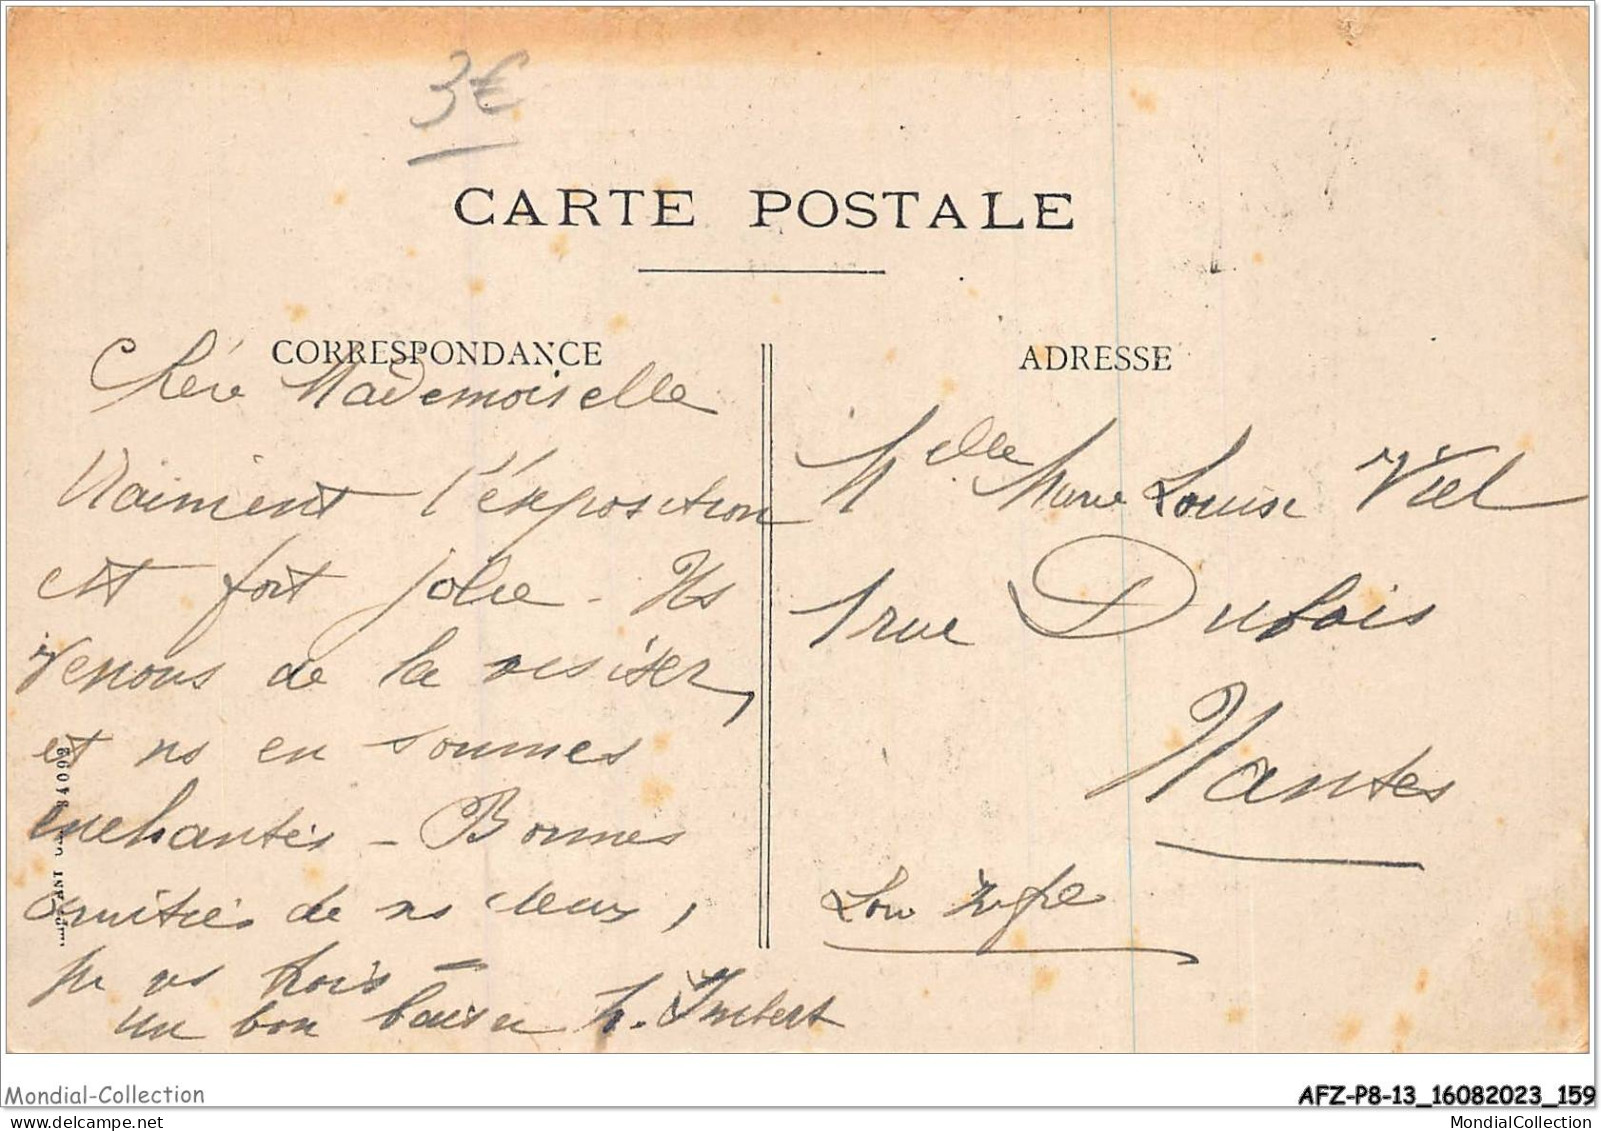 3€
CARTE POSTALE
CORRESPONDANCE
Chère Mademoiselle
Vraiment l'exposition
est fort jolie - Ns
venons de la visiter,
et ns en sommes
enchantés - Bonnes
amitiés de ns deux,
pr vs trois -
un bon baiser h. Imbert
34099
ADRESSE
Melle Marie Louise Viel
1 rue Dubois
Nantes
Mondial-Collection
AFZ-P8-13_16082023_159
www.delcampe.net
MondialCollection